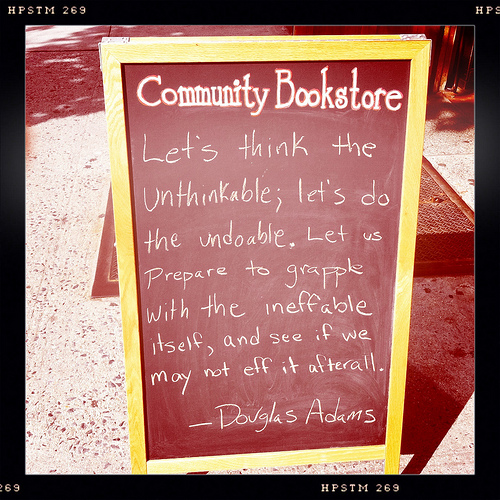 HPSTM 269
HPS
Community Bookstore
Let's think the
unthinkable; let's do
the undoable. Let us
Prepare to grapple
with the ineffable
itself, and see if we
may not eff it afterall.
— Douglas Adams
269
HPSTM 269